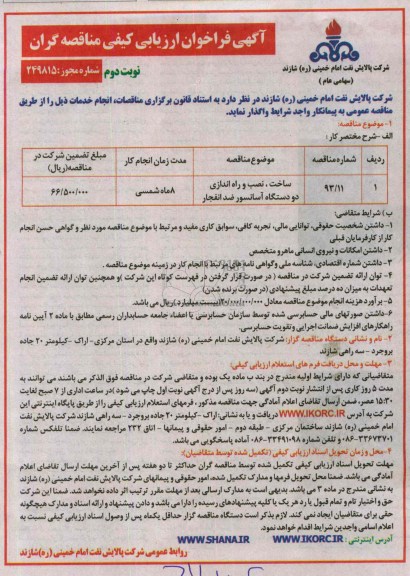 آگهی فراخوان ارزیابی کیفی مناقصه گران
شرکت پالایش نفت امام خمینی (ره) شازند
(سهامی عام)
نوبت دوم
شماره مجوز: ۲۴۹۸۱۵
شرکت پالایش نفت امام خمینی (ره) شازند در نظر دارد به استناد قانون برگزاری مناقصات، انجام خدمات ذیل را از طریق
مناقصه عمومی به پیمانکار واجد شرایط واگذار نماید.
۱- موضوع مناقصه:
الف- شرح مختصر کار:
ردیف شماره مناقصه موضوع مناقصه مدت زمان انجام کار مبلغ تضمین شرکت در مناقصه (ریال)
۱ ۹۳/۱۱ ساخت ، نصب و راه اندازی دو دستگاه آسانسور ضد انفجار ۸ ماه شمسی ۶۶/۵۰۰/۰۰۰
ب) شرایط متقاضی:
۱- داشتن شخصیت حقوقی، توانایی مالی، تجربه کافی، سوابق کاری مفید و مرتبط با موضوع مناقصه مورد نظر و گواهی حسن انجام
کار از کارفرمایان قبلی
۲- داشتن امکانات و نیروی انسانی ماهر و متخصص
۳- داشتن شماره اقتصادی، شناسه ملی و گواهی نامه های مرتبط با انجام کار در زمینه موضوع مناقصه.
۴- توان ارائه تضمین شرکت در مناقصه (در صورت قرار گرفتن در فهرست کوتاه این شرکت) و همچنین توان ارائه تضمین انجام
تعهدات به میزان ده درصد مبلغ پیشنهادی (در صورت برنده شدن).
۵- برآورد هزینه انجام موضوع مناقصه معادل میلیارد) ریال می باشد.
۶- داشتن صورتهای مالی حسابرسی شده توسط سازمان حسابرسی یا اعضاء جامعه حسابداران رسمی مطابق با ماده ۲ آیین نامه
راهکارهای افزایش ضمانت اجرایی و تقویت حسابرسی.
۲- نام و نشانی دستگاه مناقصه گزار: شرکت پالایش نفت امام خمینی (ره) شازند واقع در استان مرکزی- اراک - کیلومتر ۲۰ جاده
بروجرد - سه راهی شازند
۳- مهلت و محل دریافت فرم های استعلام ارزیابی کیفی:
متقاضیانی که دارای شرایط اولیه مندرج در بند ب ماده یک بوده و متقاضی شرکت در مناقصه فوق الذکر می باشند می توانند به
مدت ۵ روز کاری پس از انتشار نوبت دوم آگهی (سه روز پس از درج آگهی نوبت اول چاپ می شود) در ساعت اداری از ۷ صبح لغایت
۱۵:۳۰ عصر، ضمن ارسال تقاضای اعلام آمادگی جهت مناقصه مذکور، فرمهای استعلام ارزیابی کیفی را از طریق پایگاه اینترنتی این
شرکت به آدرس WWW.IKORC.IR دریافت و یا به نشانی: اراک - کیلومتر ۲۰ جاده بروجرد - سه راهی شازند شرکت پالایش نفت
امام خمینی (ره) شازند ساختمان مرکزی - طبقه دوم - امور حقوقی و پیمانها - اتاق ۲۳۲ مراجعه نمایند. ضمنا تلفکس شماره
۰۸۶-۳۳۶۷۳۷۰۱ و تلفن شماره ۰۸۶-۳۳۴۹۱۰۹۸ آماده پاسخگویی می باشد.
۴- محل و زمان تحویل اسناد ارزیابی کیفی (تکمیل شده توسط متقاضیان):
مهلت تحویل اسناد ارزیابی کیفی تکمیل شده توسط مناقصه گران حداکثر تا دو هفته پس از آخرین مهلت ارسال تقاضای اعلام
آمادگی می باشد. ضمنا محل تحویل فرمها و مدارک تکمیل شده، امور حقوقی و پیمانهای شرکت پالایش نفت امام خمینی (ره) شازند
به نشانی مندرج در ماده ۳ می باشد. بدیهی است به مدارک ارسالی بعد از مهلت مقرر ترتیب اثر داده نخواهد شد. ضمنا این شرکت
حق و اختیار تام و تمام قبول یا رد هر یک یا کلیه پیشنهادهای رسیده را دارا می باشد و دادن پیشنهاد و ارائه اسناد و مدارک هیچگونه
حقی برای متقاضیان ایجاد نمی کند. لازم بذکر است دستگاه مناقصه گزار حداقل یکماه پس از وصول اسناد ارزیابی کیفی نسبت به
اعلام اسامی واجدین شرایط اقدام خواهد نمود.
آدرس اینترنتی : WWW.IKORC.IR و WWW.SHANA.IR
روابط عمومی شرکت پالایش نفت امام خمینی (ره) شازند